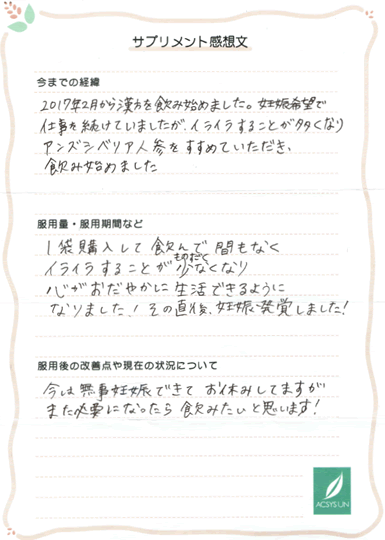 サプリメント感想文
今までの経緯
2017年2月から漢方を飲み始めました。妊娠希望で
仕事を続けていましたが、イライラすることが多くなり
アンズシベリア人参をすすめていただき、
飲み始めました
服用量・服用期間など
1袋購入して飲んで間もなく
ものすごく
イライラすることが少なくなり
心がおだやかに生活できるように
なりました！その直後、妊娠発覚しました！
服用後の改善点や現在の状況について
今は無事妊娠できてお休みしてますが
また必要になったら飲みたいと思います！
ACSYSUN